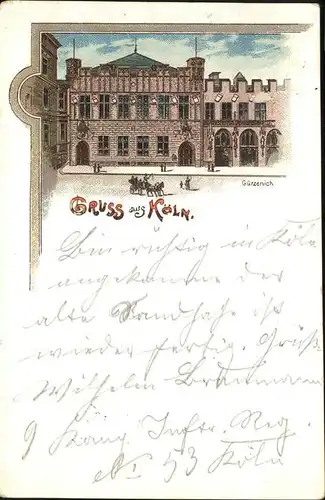 Gürzenich
GRUSS aus KÖLN.
Bin richtig in Köln
angekommen der
alte Sandhase ist
wieder fertig. Gruß
Wilhelm
9 Komp. Inftr. Reg.
No 53 Köln